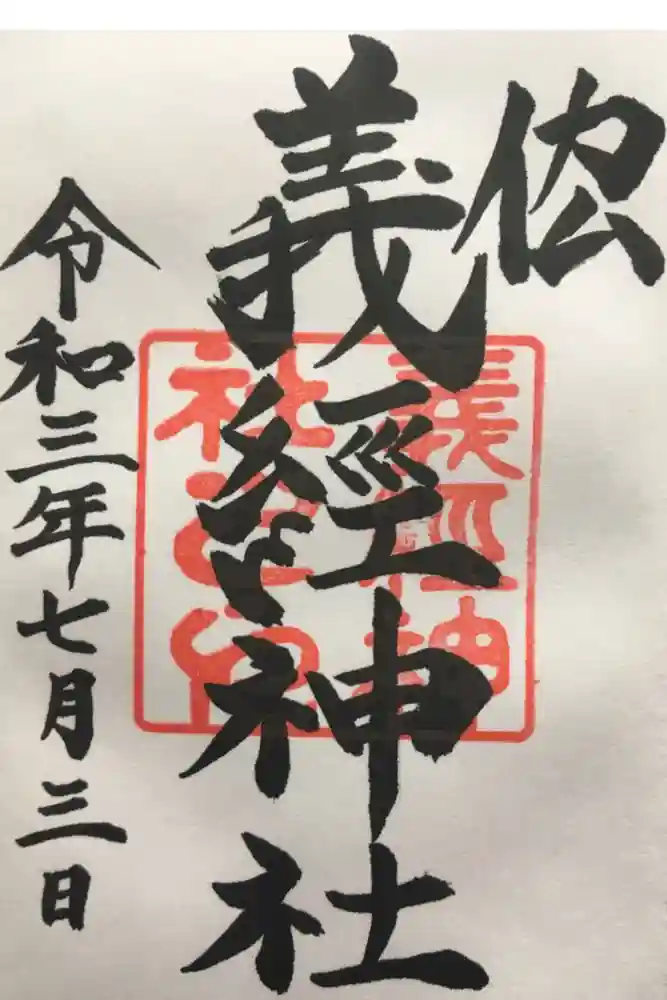 義經神社
令和三年七月三日
義經神
社之印